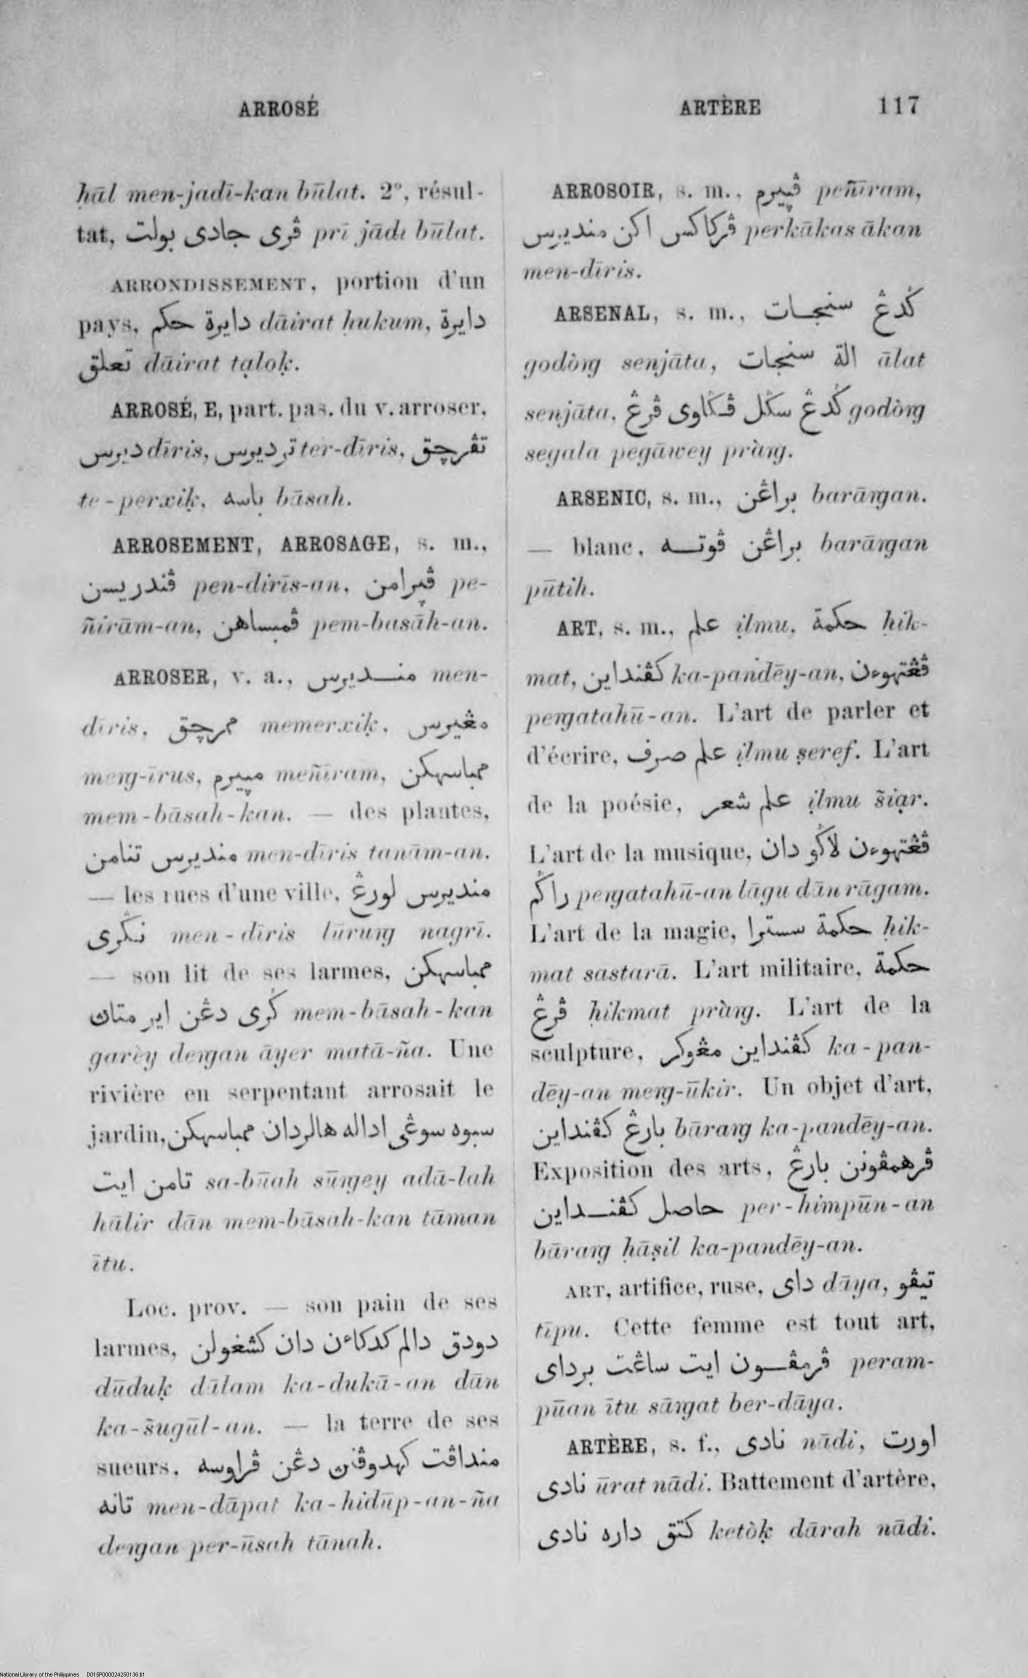 ARROSÉ
ARTÈRE 117
ḥāl men-jadī-kan būlat. 2°, résul-
tat, ڤري جادي بولت prī jādi būlat.
ARRONDISSEMENT, portion d'un
pays, دايرة حكم dāirat ḥukum, دايرة
تعلق dāirat taạloḳ.
ARROSÉ, E, part. pas. du v. arroser,
ديرس dīris, ترديرس ter-dīris, تڤرچق
te-perxiḳ, باسه bāsah.
ARROSEMENT, ARROSAGE, s. m.,
ڤنديريسن pen-dirīs-an, ڤڽيرامن pe-
ñirām-an, ڤمبساهن pem-basāh-an.
ARROSER, v. a., منديرس men-
dīris, ممرچق memerxiḳ, مڠيرس
meng-īrus, مڽيرم meñīram, ممباسهكن
mem-bāsah-kan. — des plantes,
منديرس تنامن men-dīris tanām-an.
— les rues d'une ville, منديرس لورڠ
نڬري men-dīris lūrung nagrī.
— son lit de ses larmes, ممباسهكن
ڬري دڠن اير متاڽ mem-bāsah-kan
garèy dengan āyer matā-ña. Une
rivière en serpentant arrosait le
jardin, سبوه سوڠي اداله هالردان ممباسهكن
تامن ايت sa-būah sūngey adā-lah
hālir dān mem-bāsah-kan tāman
ītu.
Loc. prov. — son pain de ses
larmes, دودق دالم كدكاءن دان كشغولن
dūduḳ dālam ka-dukā-an dān
ka-s̃ugūl-an. — la terre de ses
sueurs, منداڤت كهدوڤنڽ دڠن ڤراوسه
تانه men-dāpat ka-hidūp-an-ña
dengan per-ūsah tānah.
ARROSOIR, s. m., ڤڽيرم peñīram,
ڤركاكس اكن منديرس perkākas ākan
men-dīris.
ARSENAL, s. m., ڬدڠ سنجات
godòng senjāta, الة سنجات ālat
senjāta, ڬدڠ سڬل ڤڬاوي ڤرڠ godòng
segala pegāwey pràng.
ARSENIC, s. m., براڠن barāngan.
— blanc, براڠن ڤوته barāngan
pūtih.
ART, s. m., علم ịlmu, حكمة ḥik-
mat, كڤنداين ka-pandēy-an, ڤڠتهوءن
pengatahū-an. L'art de parler et
d'écrire, علم صرف ịlmu ṣeref. L'art
de la poésie, علم شعر ịlmu s̃iạr.
L'art de la musique, ڤڠتهوءن لاڬو دان
راڬم pengatahū-an lāgu dān rāgam.
L'art de la magie, حكمة سسترا ḥik-
mat sastarā. L'art militaire, حكمة
ڤرڠ ḥikmat pràng. L'art de la
sculpture, كڤنداين مڠوكر ka-pan-
dēy-an meng-ūkir. Un objet d'art,
بارڠ كڤنداين bārang ka-pandēy-an.
Exposition des arts, ڤرهمڤونن بارڠ
حاصل كڤنداين per-himpūn-an
bārang ḥāṣil ka-pandēy-an.
ART, artifice, ruse, داي dāya, تيڤو
tīpu. Cette femme est tout art,
ڤرمڤون ايت ساڠت برداي peram-
pūan ītu sāngat ber-dāya.
ARTÈRE, s. f., نادي nādi, اورت
نادي ūrat nādi. Battement d'artère,
كتق داره نادي ketòḳ dārah nādi.
National Library of the Philippines